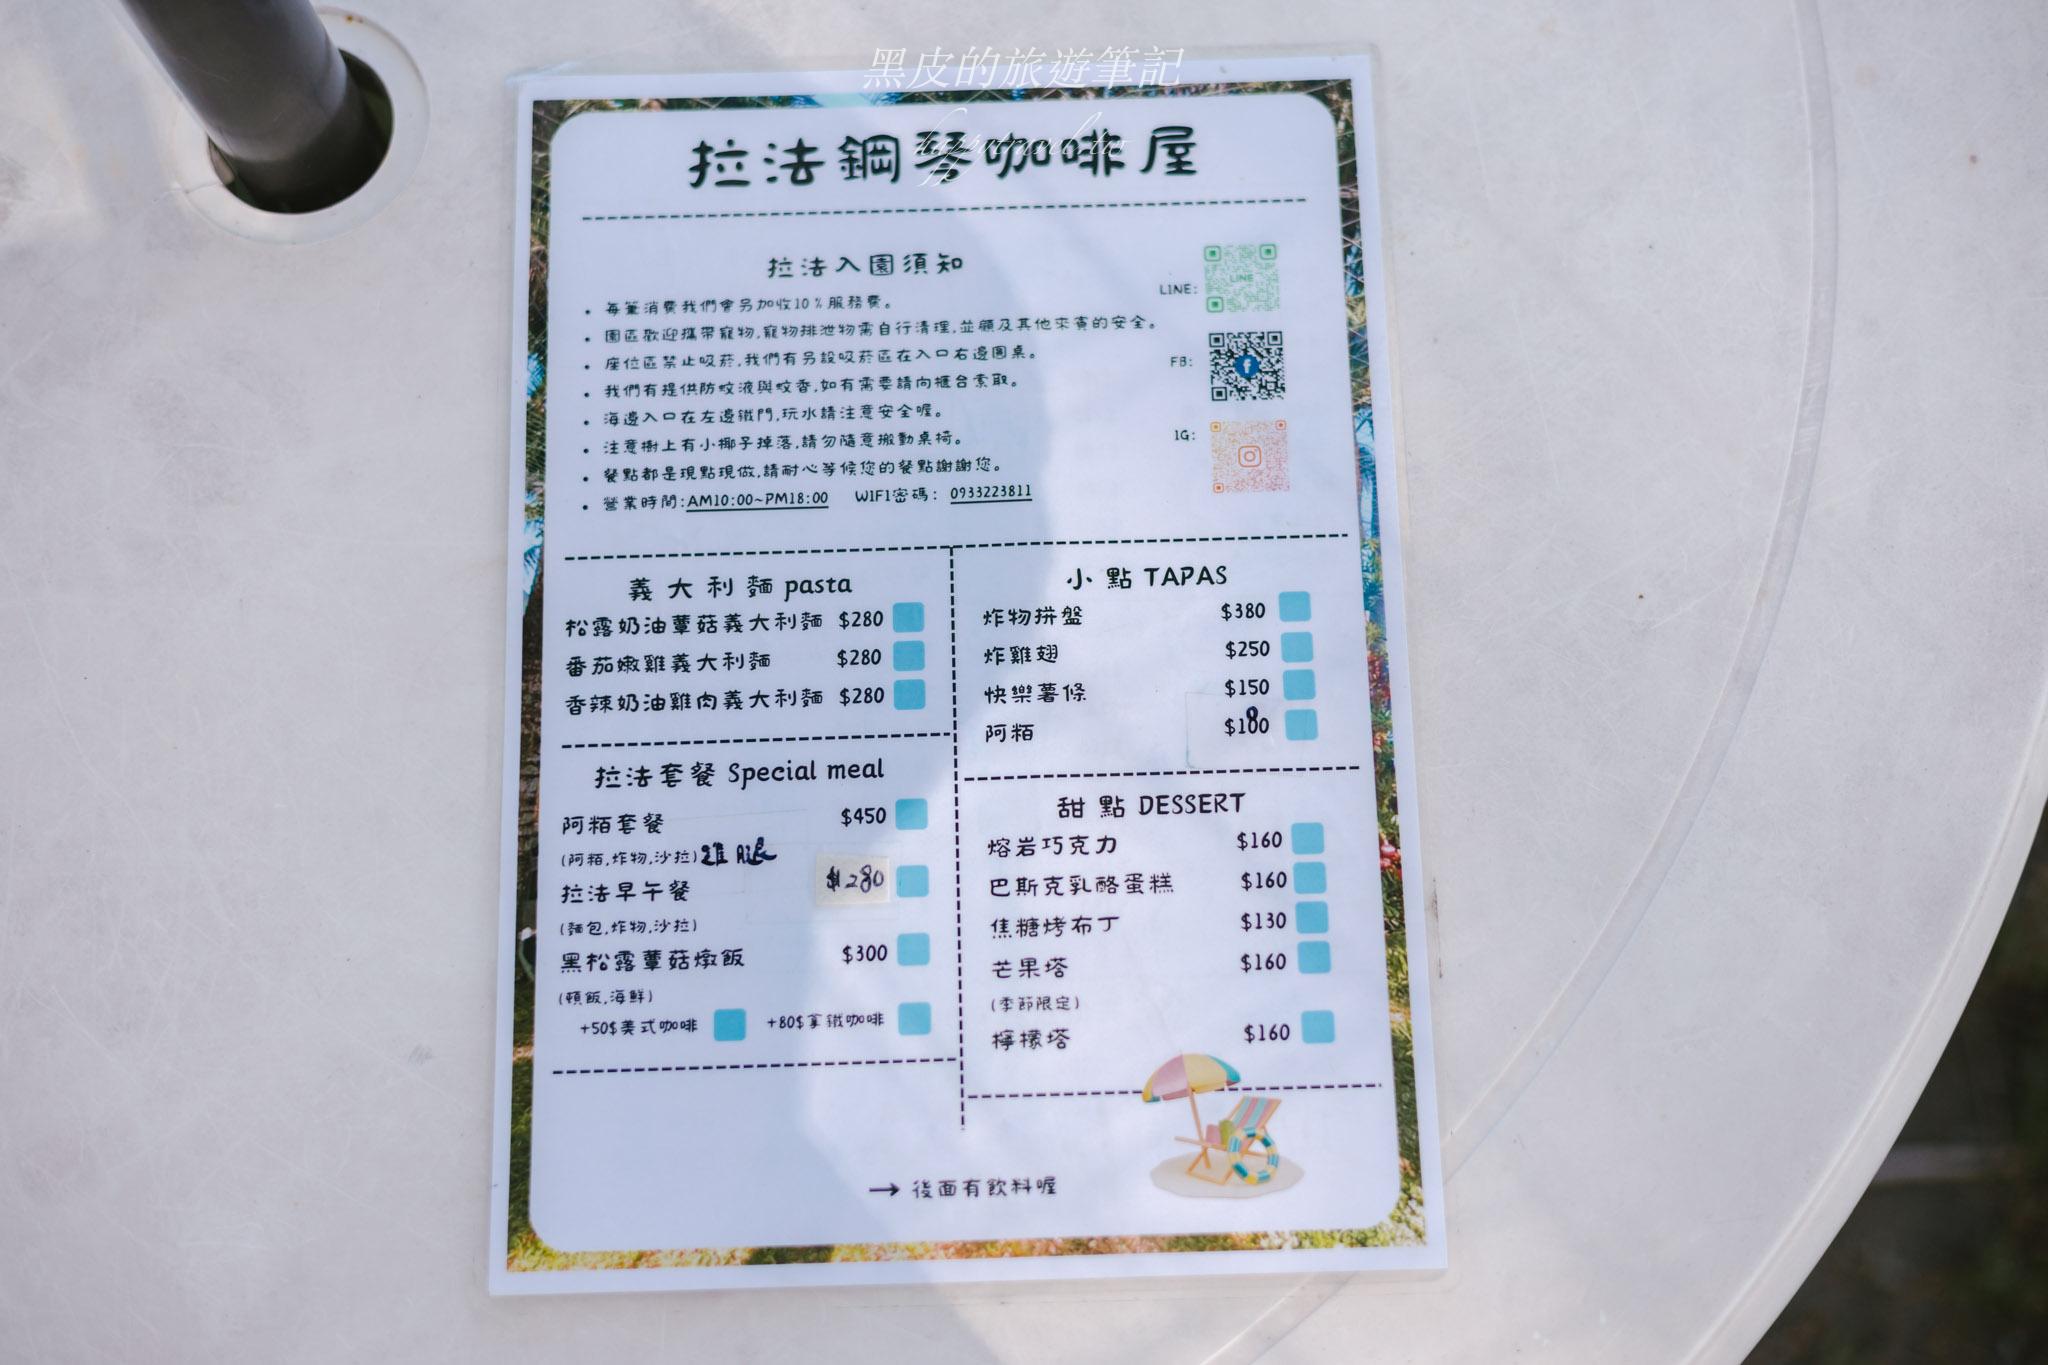 黑皮的旅遊筆記
happytravel.tw
拉法鋼琴咖啡屋
拉法入園須知
• 每筆消費我們會另加收10%服務費。
• 園區歡迎攜帶寵物,寵物排泄物需自行清理,並顧及其他來賓的安全。
• 座位區禁止吸菸,我們有另設吸菸區在入口右邊圓桌。
• 我們有提供防蚊液與蚊香,如有需要請向櫃台索取。
• 海邊入口在左邊鐵門,玩水請注意安全喔。
• 注意樹上有小椰子掉落,請勿隨意搬動桌椅。
• 餐點都是現點現做,請耐心等候您的餐點謝謝您。
• 營業時間:AM10:00~PM18:00 WIFI密碼: 0933223811
LINE:
LINE
FB:
IG:
義大利麵 pasta
松露奶油蕈菇義大利麵 $280
番茄嫩雞義大利麵 $280
香辣奶油雞肉義大利麵 $280
拉法套餐 Special meal
阿粨套餐 $450
(阿粨,炸物,沙拉) 雞腿
拉法早午餐 $280
(麵包,炸物,沙拉)
黑松露蕈菇燉飯 $300
(頓飯,海鮮)
+50$美式咖啡 +80$拿鐵咖啡
小點 TAPAS
炸物拼盤 $380
炸雞翅 $250
快樂薯條 $150
阿粨
甜點 DESSERT
熔岩巧克力 $160
巴斯克乳酪蛋糕 $160
焦糖烤布丁 $130
芒果塔 $160
(季節限定)
檸檬塔 $160
→ 後面有飲料喔